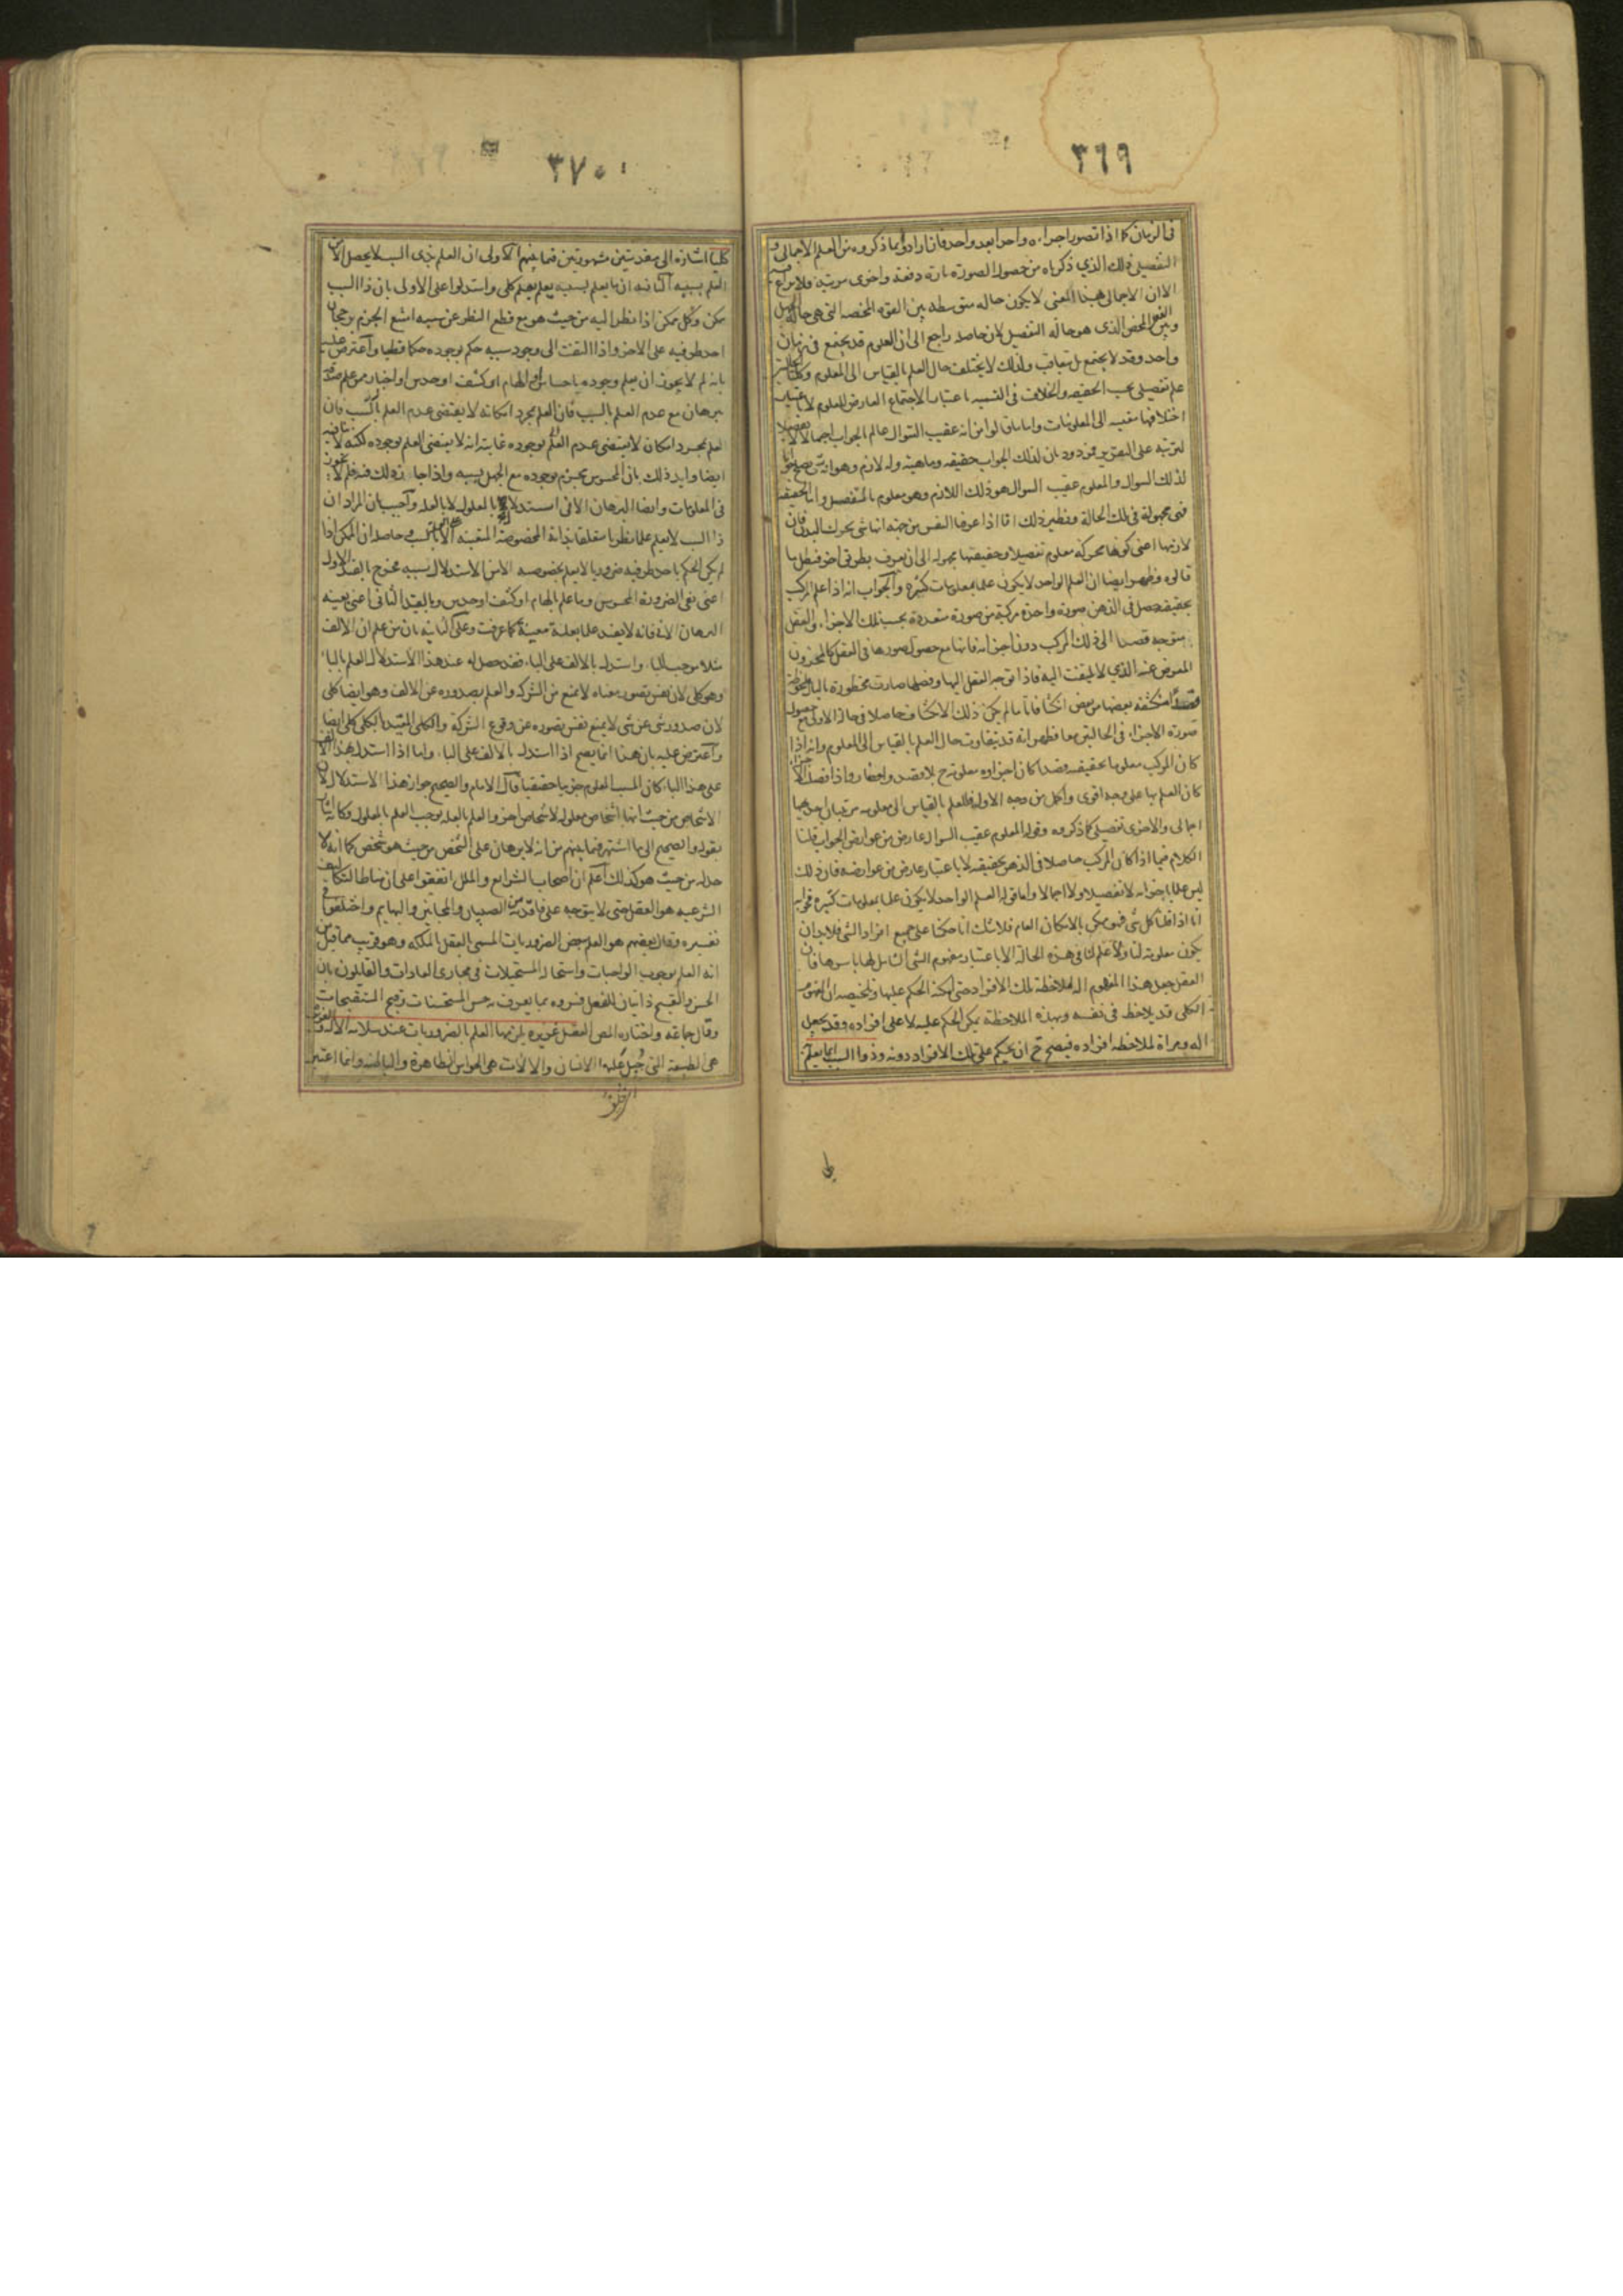 ٣٦٩
فى الزمان كما اذا تصور اجزاءه واحدا بعد واحد فان ارادوا بما ذكروه من العلم الاجمالى و
التفصيلى ذلك الذي ذكرناه من حصول الصورة تارة دفعة واخرى مرتبة فلا نزاع فيه
الا ان الاجمالى بهذا المعنى لا يكون حالة متوسطة بين القوة المحضة التى هى حالة الجهل
وبين الفعل المحض الذى هو حالة التفصيل لان حاصله راجع الى ان العلوم قد يجتمع فى زمان
واحد وقد لا يجتمع بل يتعاقب ولذلك لا يختلف حال العلم بالقياس الى المعلوم وكلتا
علم تفصيلى بحسب الحقيقة والخلاف فى التسمية باعتبار الاجتماع العارض للعلوم لا باعتبار
اختلافها مقيسة الى المعلومات واما ما قالوا من انه عقيب السؤال عالم الجواب اجمالا لا تفصيلا
لترتبه على التقرير فمردود بان لذلك الجواب حقيقة وماهية وله لازم وهو انه شئ يصلح جوابا
لذلك السوال والمعلوم عقيب السوال هو ذلك اللازم وهو معلوم بالتفصيل واما الحقيقة
فهى مجهولة فى تلك الحالة ونظير ذلك انا اذا عرفنا النفس من جهة انها شئ يحرك البدن فان
لازمها اعنى كونها محركة معلوم تفصيلا وحقيقتها مجهولة الى ان يعرف بطريق اخر فبطل ما
قالوه وظهر ايضا ان العلم الواحد لا يكون علما بمعلومات كثيرة والجواب انه اذا علم المركب
بحقيقته حصل فى الذهن صورة واحدة مركبة من صورة متعددة بحسب تلك الاجزاء والعقل
متوجه قصدا الى ذلك المركب دون اجزائه فانها مع حصول صورها فى العقل كالمخزون
المعرض عنه الذي لا يلتفت اليه فاذا توجه العقل اليها وفصلها صارت مخطورة بالبال ملحوظة
قصدا منكشفة بعضها من بعض انكشافا تاما لم يكن ذلك الانكشاف حاصلا فى حالة الاولى مع حصول
صورة الاجزاء فى الحالتين معا فظهر انه قد يتفاوت حال العلم بالقياس الى المعلوم وانه اذا
كان المركب معلوما بحقيقته قصدا كان اجزاؤه معلومة ح بلا قصد واخطار واذا فصل الاجزاء
كان العلم بها على وجه اقوى واكمل من وجه الاول فللعلم بالقياس الى معلومه مرتبتان احديهما
اجمالى والاخرى تفصيلى كما ذكروه وقوله المعلوم عقيب السوال عارض من عوارض الجواب قلنا
الكلام فيما اذا كان المركب حاصلا فى الذهن بحقيقته لا باعتبار عارض من عوارضه فان ذلك
ليس علما باجزائه لا تفصيلا ولا اجمالا واما قوله العلم الواحد لا يكون علما بمعلومات كثيرة فجوابه
انا اذا قلنا كل شئ فهو ممكن بالامكان العام فلا شك انا حكمنا على جميع افراد الشئ فلا بد ان
يكون معلومة لنا ولا علم لنا فى هذه الحالة الا باعتبار مفهوم الشئ الشامل لها باسرها فان
العقل جعل هذا المفهوم آلة لملاحظة تلك الافراد حتى امكنه الحكم عليها وتلخيصه ان المفهوم
الكلى قد يلاحظ فى نفسه وبهذه الملاحظة يمكن الحكم عليه لا على افراده وقد يجعل
آلة ومرآة لملاحظة افراده فيصح ح ان يحكم على تلك الافراد دونه وذوا السبب انما يعلم به
٣٧٠
كليا اشارة الى مقدمتين مشهورتين فيما بينهم الاولى ان العلم بذى السبب لا يحصل الا من
العلم بسببه الثانية ان ما يعلم بسببه يعلم بعلم كلى واستدلوا على الاولى بان ذا السبب
ممكن وكل ممكن اذا نظر اليه من حيث هو مع قطع النظر عن سببه امتنع الجزم برجحان
احد طرفيه على الاخر واذا التفت الى وجود سببه حكم بوجوده حكما قطعيا واعترض عليه
بانه لم لا يجوز ان يعلم وجوده باحساس او الهام او كشف او حدس او اخبار من علم صدقه
ببرهان مع عدم العلم بالسبب فان العلم بمجرد امكانه لا يقتضى عدم العلم بالسبب فان
العلم بمجرد امكان لا يقتضى عدم العلم بوجوده غايته انه لا يقتضى العلم بوجوده لكنه لا ينافيه
ايضا وايد ذلك بان المحسوس يجزم بوجوده مع الجهل بسببه واذا جاز ذلك فيه فلم لا يجوز
فى المعلومات وايضا البرهان الانى استدلال بالمعلول لا بالعلة واجيب بان المراد ان
ذا السبب لا يعلم علما نظريا متعلقا بذاته المخصوصة المتعينة الا بالسبب وحاصله ان الممكن اذا
لم يكن الحكم باحد طرفيه ضروريا لا يعلم بخصوصه الا من الاستدلال بسببه فخرج بالقيد الاول
اعنى نفى الضرورة المحسوس وما علم بالهام او كشف او حدس وبالقيد الثانى اعنى بعينه
البرهان الانى فانه لا يفيد علما بعلة معينة كما عرفت وعلى الثانية بان من علم ان الالف
مثلا موجب للباء واستدل بالالف على الباء فقد حصل له عند هذا الاستدلال العلم بالباء
وهو كلى لان نفس تصور معناه لا تمنع من الشركة والعلم بصدوره عن الالف وهو ايضا كلى
لان صدور شئ عن شئ لا يمنع نفس تصوره عن وقوع الشركة والكلى المقيد بالكلى كلى ايضا
واعترض عليه بان هذا انما يصح اذا استدل بالالف على الباء واما اذا استدل بهذا الالف
على هذا الباء كان المسبب المعلوم جزئيا حقيقيا قال الامام والصحيح جواز هذا الاستدلال لان
الاشخاص من حيث انها اشخاص معلولة لاشخاص اخر والعلم بالعلة يوجب العلم بالمعلول وكانه اشار
بقوله والصحيح الى ما اشتهر فيما بينهم من انه لا برهان على الشخص من حيث هو شخص كما انه لا
حد له من حيث هو كذلك اعلم ان اصحاب الشرايع والملل اتفقوا على ان مناط التكاليف
الشرعيه هو العقل حتى لا يتوجه على فاقديه من الصبيان والمجانين والبهايم واختلفوا فى
تفسيره وقال بعضهم هو العلم ببعض الضروريات المسمى العقل بالملكة وهو قريب مما قيل من
انه العلم بوجوب الواجبات واستحالة المستحيلات فى مجارى العادات والقايلون بان
الحسن والقبيح ذاتيان للفعل فسروه بما يعرف به حسن المستحسنات وقبح المستقبحات
وقال جماعة واختاره المص العقل غريزه يلزمها العلم بالضروريات عند سلامة الآلات والغريزة
هى الطبيعة التى جبل عليها الانسان والالات هى الحواس الظاهرة والباطنة وانما اعتبر